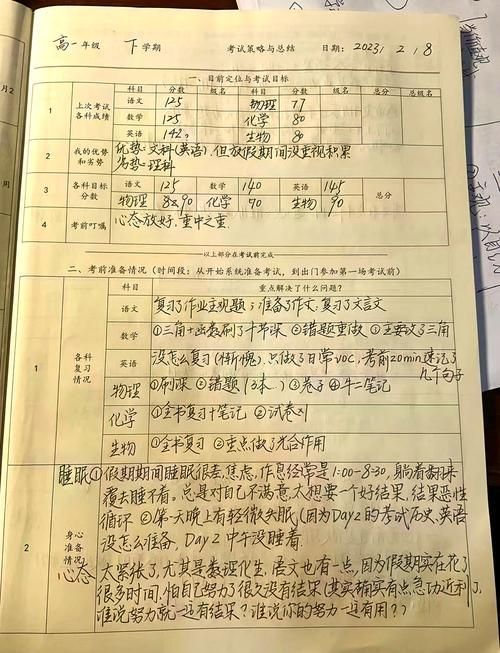 高一年级 下学期 考试策略与总结 日期: 2023, 2, 8
一、目前定位与考试目标
1 上次考试各科成绩 科目 分数 级名 科目 分数 级名 总分 总级名
语文 125 物理 77
数学 125 化学 80
英语 142 生物 80
2 我的优势和劣势 优势:文科(英语),但放假期间没重视积累
劣势:理科
3 各科目标分数 语文 125 数学 140 英语 145 总分
物理 8290 化学 70 生物 90
4 考前叮嘱 心态放好,重中之重.
以上部分在考试前完成
二、考前准备情况(时间段:从开始系统准备考试,到出门参加第一场考试前)
1 各科复习情况 科目 重点解决了什么问题?
语文 复习了作业主观题;准备了作文,复习了文言文
数学 ①三角+函数刷了十节课 ②错题重做 ③主要攻了三角
英语 没怎么复习(惭愧).只做了日常voc,考前20min速记了几个句子
物理 ①刷课 ②错题(2本..) ③卷子 ④牛二笔记
化学 ①全书复习+笔记 ②试卷×1
生物 ①全书复习 ②重点做了光合作用
2 身心准备情况
睡眠 ①假期期间睡眠很差,焦虑,作息经常是1:00-8:30,躺着翻来
覆去睡不着。总是对自己不满意,太想要一个好结果,结果恶性
循环 ②第一天晚上有轻微失眠,(因为Day2的考试历史,英语
没怎么准备,Day2中午没睡着.
心态 太紧张了,尤其是数理化生.语文也有一点,因为假期实在花了
很多时间,怕自己努力了很久没有结果(其实确实有点急功近利了.
谁说努力就一定有结果?谁说你的努力一定有用?)